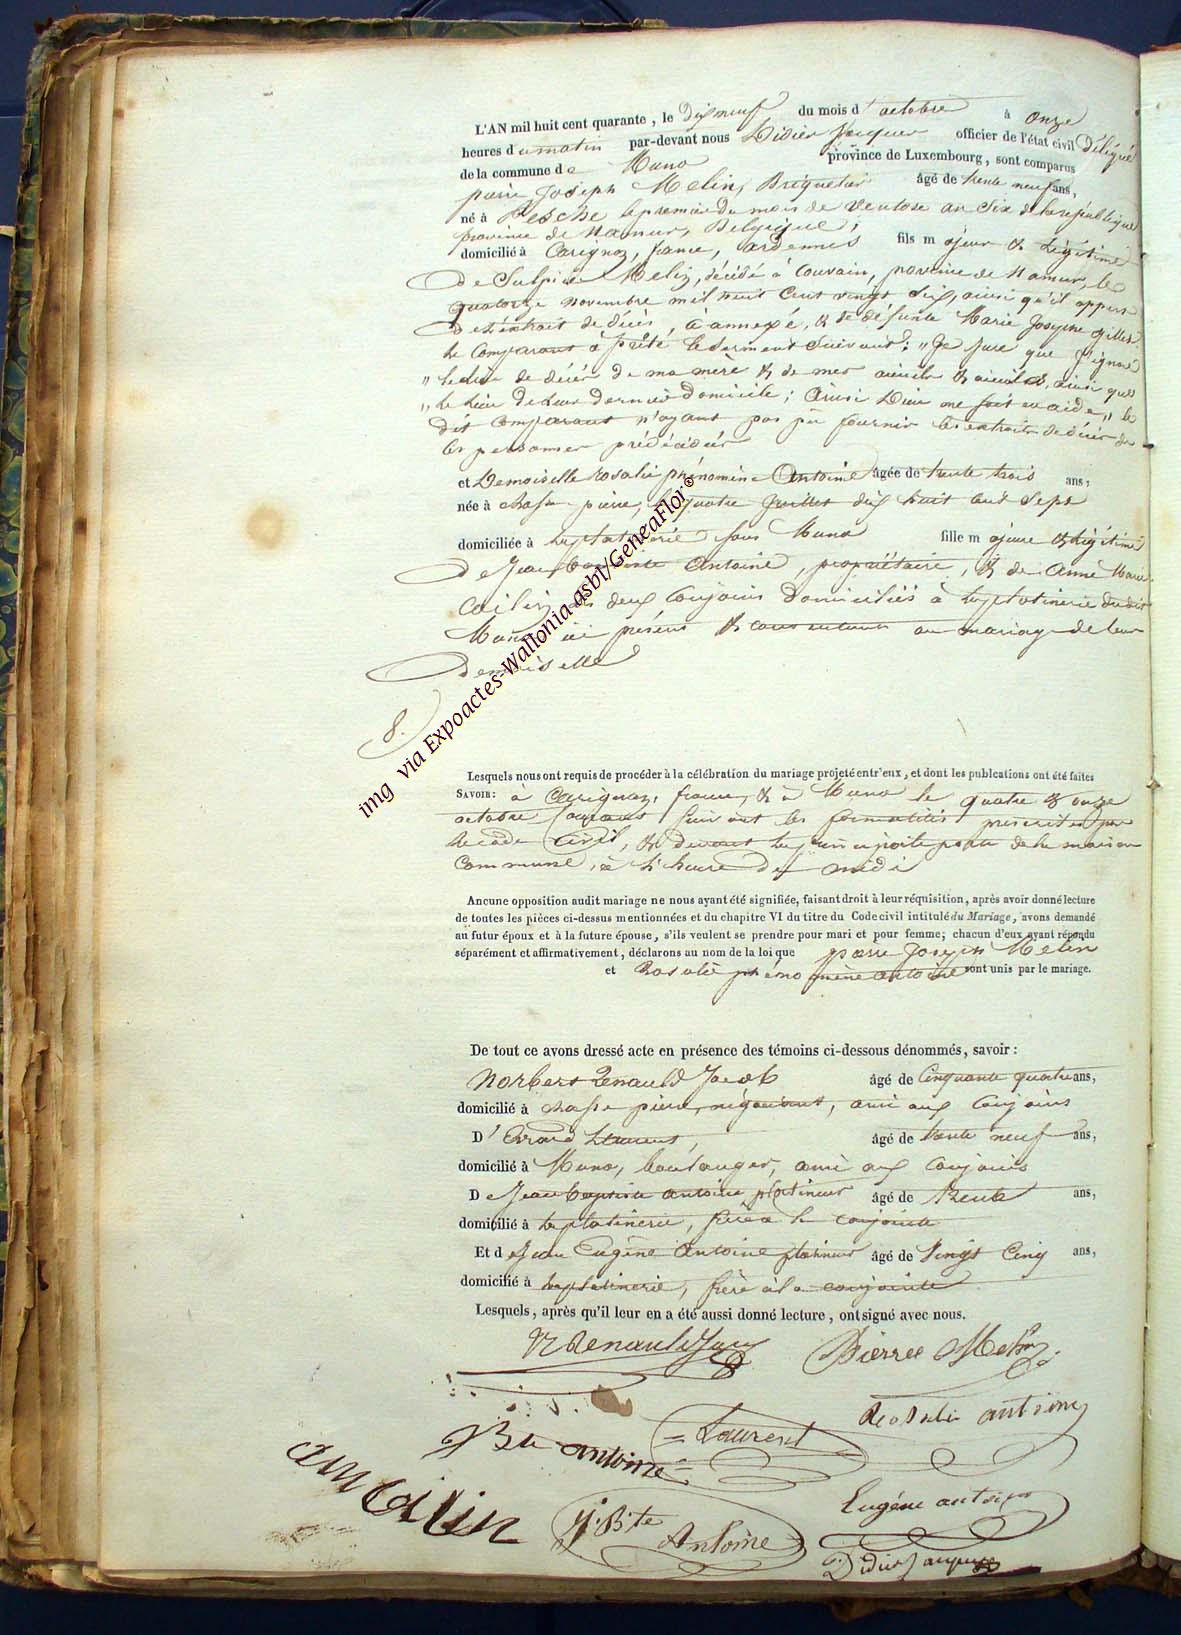 L'AN mil huit cent quarante, le dixneuf du mois d'octobre à onze
heures du matin par-devant nous Didier Jacques officier de l'état civil délégué
de la commune de Muno province de Luxembourg, sont comparus
pierre Joseph Melin, Briquetier âgé de trente neuf ans,
né à Pesche le premier du mois de ventose an Six de la république
province de Namur, Belgique;
domicilié à Carignan, france, ardennes fils majeur & Légitime
De Sulpice Melin, décédé à Couvain, province de Namur, le
quatorze novembre mil huit Cent vingt Six, ainsi qu'il appert
De l'extrait de décès, ci annexé, & de défunte Marie Josephe Gilles
le Comparant a prêté le serment suivant: "Je jure que j'ignore
" le lieu de décès de ma mère & de mes aieuls & aieules, ainsi que
" le lieu de Leur dernier Domicile; Ainsi Dieu me soit en aide," le
dit Comparant n'ayant pas pu fournir les extraits de décès des
les personnes précédées
et Demoiselle Rosalie phénomine Antoine âgée de trente trois ans,
née à Chasse-pierre, le quatre Juillet dix huit cent Sept
domiciliée à la platinerie sous Muno fille majeure & légitime
De Jean baptiste Antoine, propriétaire, & de Anne Marie
Cailin les deux Conjoints Domiciliés à la platinerie du dit
Muno ici présens & consentants au mariage de leur
Demoiselle
8.
Lesquels nous ont requis de procéder à la célébration du mariage projeté entr'eux, et dont les publications ont été faites
SAVOIR: à Carignan, france, & à Muno le quatre & onze
octobre Courant suivant les formalités prescrites par
le code Civil, & devant la principale porte de la maison
Commune, à l'heure de midi
Ancune opposition audit mariage ne nous ayant été signifiée, faisant droit à leur réquisition, après avoir donné lecture
de toutes les pièces ci-dessus mentionnées et du chapitre VI du titre du Code civil intitulé du Mariage, avons demandé
au futur époux et à la future épouse, s'ils veulent se prendre pour mari et pour femme; chacun d'eux ayant répondu
séparément et affirmativement, déclarons au nom de la loi que pierre Joseph Melin
et Rosalie phénomène antoine sont unis par le mariage.
De tout ce avons dressé acte en présence des témoins ci-dessous dénommés, savoir:
Norbert Renauld Jacob âgé de Cinquante quatre ans,
domicilié à Chasse pierre, négociant, ami aux Conjoints
D'Evrard Laurent, âgé de trente neuf ans,
domicilié à Muno, boulanger, ami aux Conjoints
De Jean baptiste Antoine platineur âgé de Trente ans,
domicilié à la platinerie, frère à la conjointe
Et de Jean Eugène Antoine platineur âgé de Vingt Cinq ans,
domicilié à la platinerie, frère à la conjointe
Lesquels, après qu'il leur en a été aussi donné lecture, ont signé avec nous.
Pierre Melin
Rosalie antoine
Laurent
antoine
am Cailin
j. Bte Antoine
Eugène antoine
Didier Jacques
img via Expoactes-Wallonia asbl/GeneaFlor©